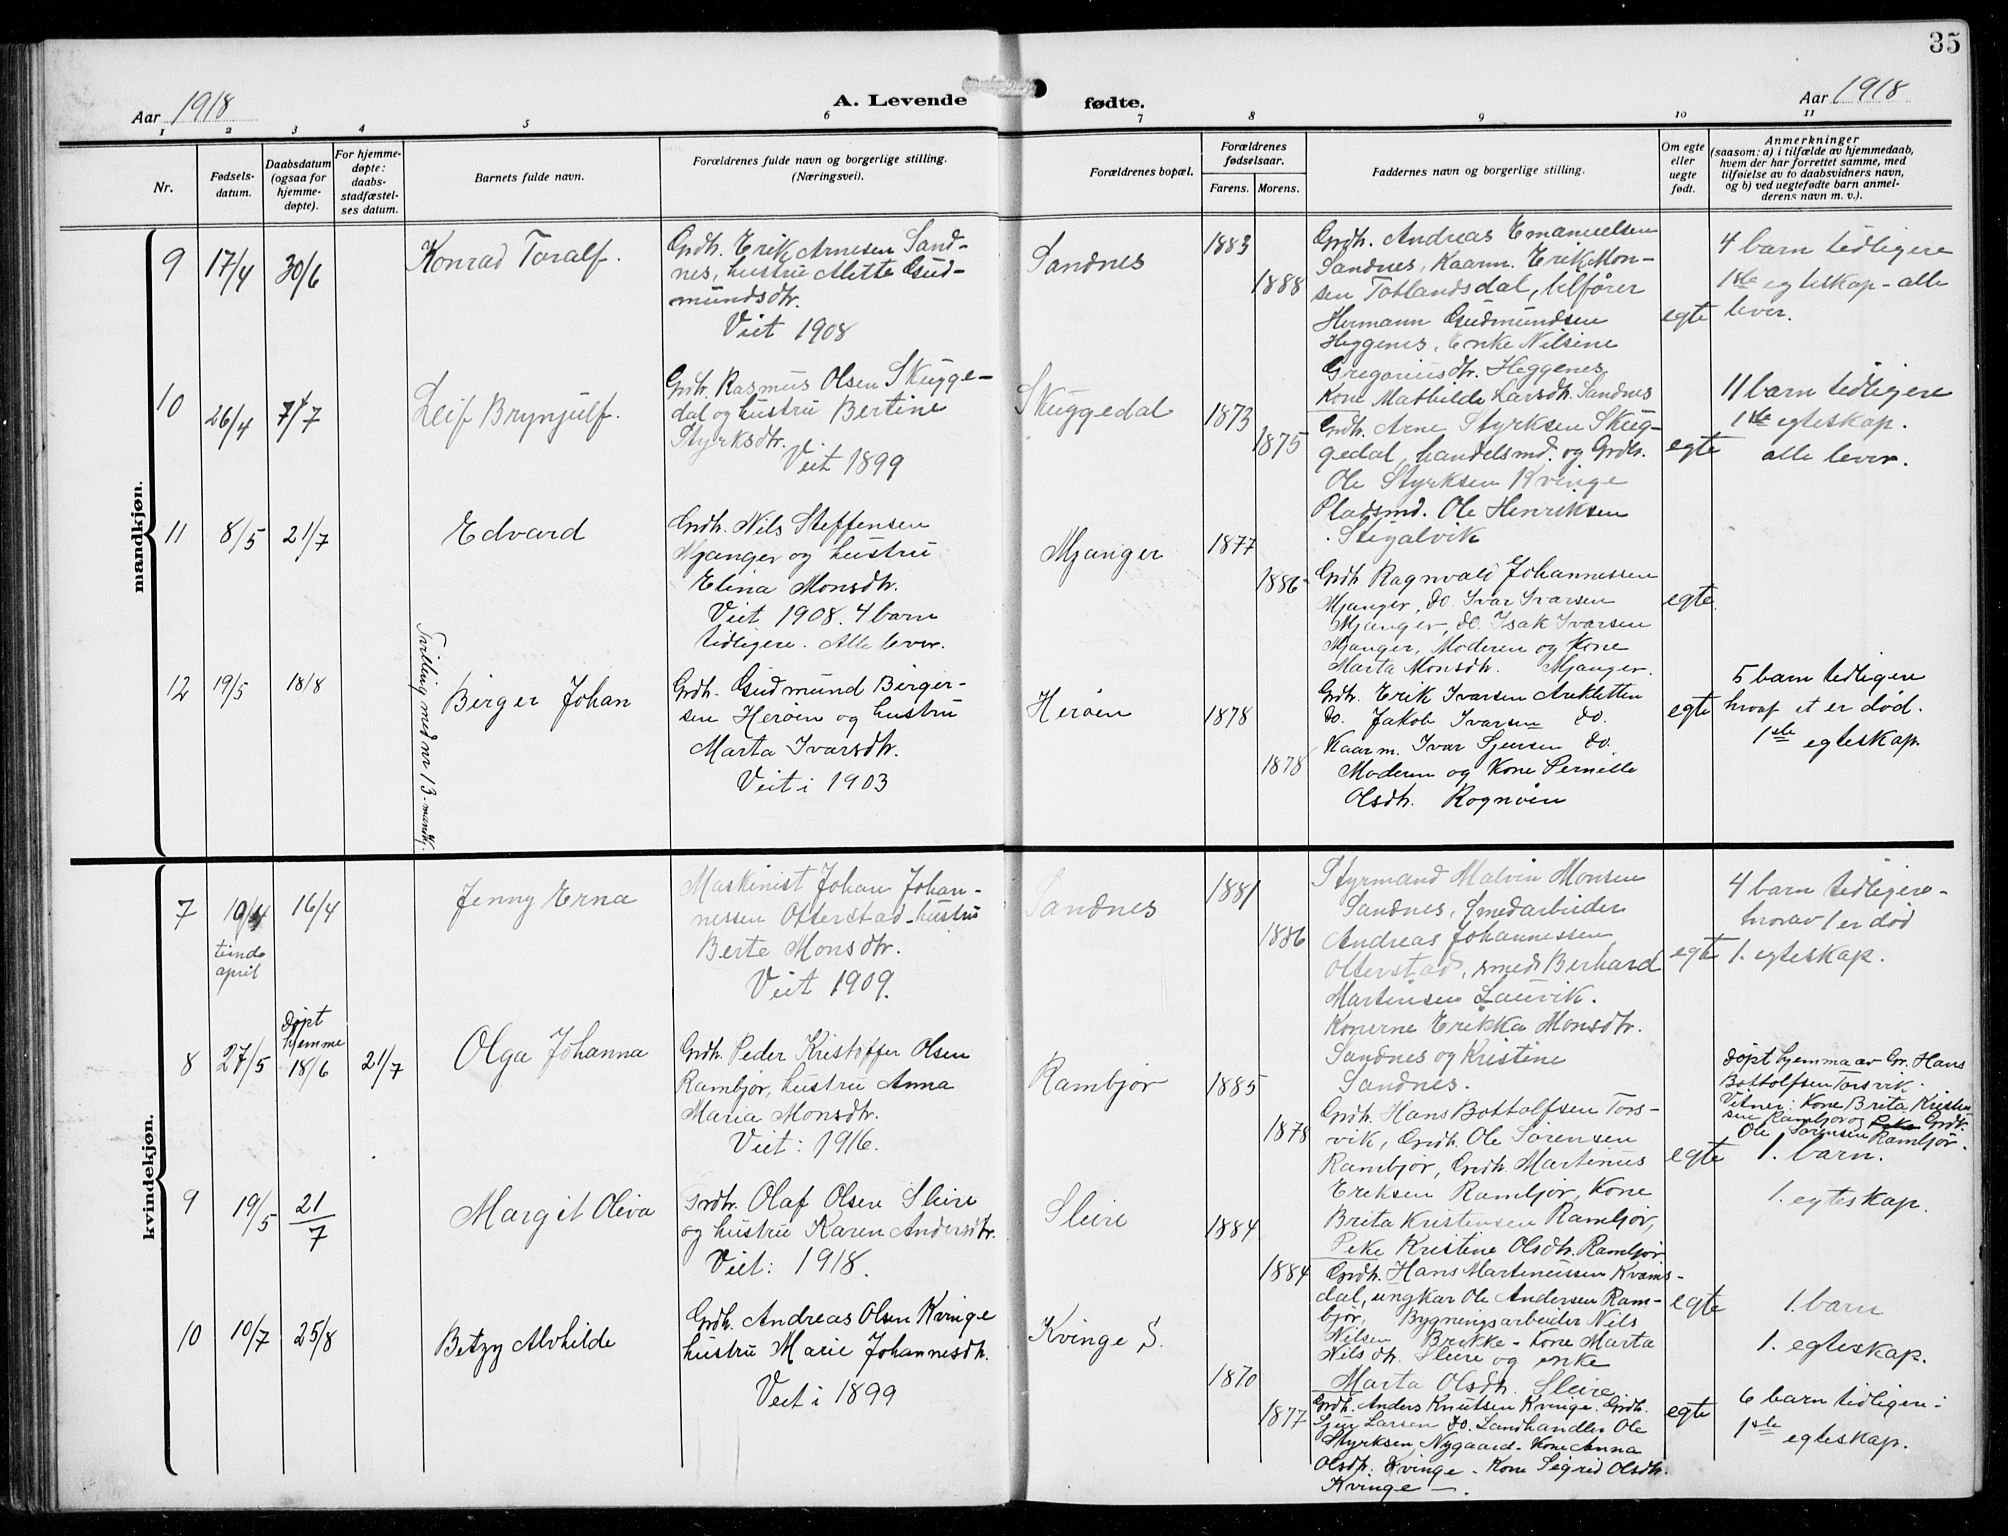 35
Aar 1918
A. Levende fødte.
Aar 1918
1 2 3 4 5 6 7 8 9 10 11
Nr.
Fødsels-
datum.
Daabsdatum
(ogsaa for
hjemme-
døpte).
For hjemme-
døpte:
daabs-
stadfæstel-
ses datum.
Barnets fulde navn.
Forældrenes fulde navn og borgerlige stilling.
(Næringsvei).
Forældrenes bopæl.
Forældrenes
fødselsaar.
Farens. Morens.
Faddernes navn og borgerlige stilling.
Om egte
eller
uegte
født.
Anmerkninger
(saasom: a) i tilfælde av hjemmedaab,
hvem der har forrettet samme, med
tilføielse av to daabsvidners navn,
og b) ved uegtefødte barn anmel-
derens navn m. v.).
mandkjøn.
9
17/4
30/6
Konrad Toralf.
Grdbr. Erik Arnesen Sand-
nes, hustru Alette Gud-
mundsdtr.
Viet 1908
Sandnes
1883
1888
Grdbr. Andreas Emanuelsen
Sandnes, Kaarm. Erik Mon-
sen Totlandsdal, lilfører
Hermann Gudmundsen
Heggenes, Enke Nilsine
Gregoriusdtr. Heggenes,
Kone Mathilde Larsdtr. Sandnes
egte
4 barn tidligere
1ste egteskap - alle
lever.
10
26/4
7/7
Leif Brynjulf.
Grdbr. Rasmus Olsen Skugge-
dal og hustru Bertine
Styrksdtr.
Viet 1899
Skuggedal
1873
1875
Grdbr. Arne Styrksen Skug-
gedal, handelsmd. og Grdbr.
Ole Styrksen Kvinge
Pladsmd. Ole Henriksen
Stigalvik
egte
11 barn tidligere
1ste egteskap.
alle lever.
11
8/5
21/7
Edvard
Grdbr. Nils Steffensen
Mjanger og hustru
Elina Monsdtr.
Viet 1908. 4 barn
tidligere. Alle lever.
Mjanger
1877
1886
Grdbr Ragnvald Johannessen
Mjanger, do. Ivar Ivarsen
Mjanger, do. Isak Ivarsen
Mjanger, Moderen og Kone
Marta Monsdtr. Mjanger.
egte
12
19/5
18/8
Tvilling med nr 13 - mandkj.
Birger Johan
Grdbr. Gudmund Birger-
sen Herøen og hustru
Marta Ivarsdtr.
Viet i 1903
Herøen
1878
1878
Grdbr. Erik Ivarsen Arikletten
do. Jakob Ivarsen do.
Kaarm. Ivar Sjursen do.
Moderen og Kone Pernelle
Olsdtr. Rognøen
egte
5 barn tidligere
hvoraf et er død.
1ste egteskap.
kvindekjøn.
7
10/4
tiende
april
16/4
Jenny Erna
Maskinist Johan Johan-
nessen Otterstad - hustru
Berte Monsdtr.
Viet 1909.
Sandnes
1881
1886
Styrmand Malvin Monsen
Sandnes, Smedarbeider
Andreas Johannessen
Otterstad, smed Berhard
Martinsen Lauvik.
Konerne Erikka Monsdtr.
Sandnes og Kristine
Sandnes.
egte
4 barn tidligere -
hvorav 1 er død
1. egteskap.
8
27/5
døpt
hjemme
18/6
21/7
Olga Johanna
Grdbr. Peder Kristoffer Olsen
Rambjør, hustru Anna
Maria Monsdtr.
Viet: 1916.
Rambjør
1885
1878
Grdbr. Hans Bottolfsen Tors-
vik, Grdbr. Ole Sørensen
Rambjør, Grdbr. Martinus
Eriksen Rambjør, Kone
Brita Kristensen Rambjør,
Peke Kristine Olsdtr. Rambjør
egte
døpt hjemma av Gr. Hans
Bottolfsen Torsvik.
Vitner: Kone Brita Kristen-
sen Rambjør og Peke Grdbr.
Ole Sørensen Rambjør.
1. barn.
1. egteskap.
9
19/5
21/7
Margit Oliva
Grdbr. Olaf Olsen Sleire
og hustru Karen Andersdtr.
Viet: 1918.
Sleire
1884
1884
Grdbr. Hans Martinussen Kvams-
dal, ungkar Ole Andersen Ram-
bjør, Bygningsarbeider Nils
Nilsen Brekke - Kone Marta
Nilsdtr. Sleire og enke
Marta Olsdtr. Sleire.
egte
1. barn
1. egteskap.
10
10/7
25/8
Betzy Alvhilde
Grdbr. Andreas Olsen Kvinge
hustru Marie Johannesdtr.
Viet i 1899
Kvinge S.
1870
1877
Grdbr. Anders Knutsen Kvinge. Grdbr.
Sjur Larsen do. Landhandler Ole
Styrksen, Nygaard - Kone Anna
Olsdtr. Kvinge - Kone Sigrid Olsdtr.
Kvinge -.
egte
6 barn tidligere i
1ste
egteskap.